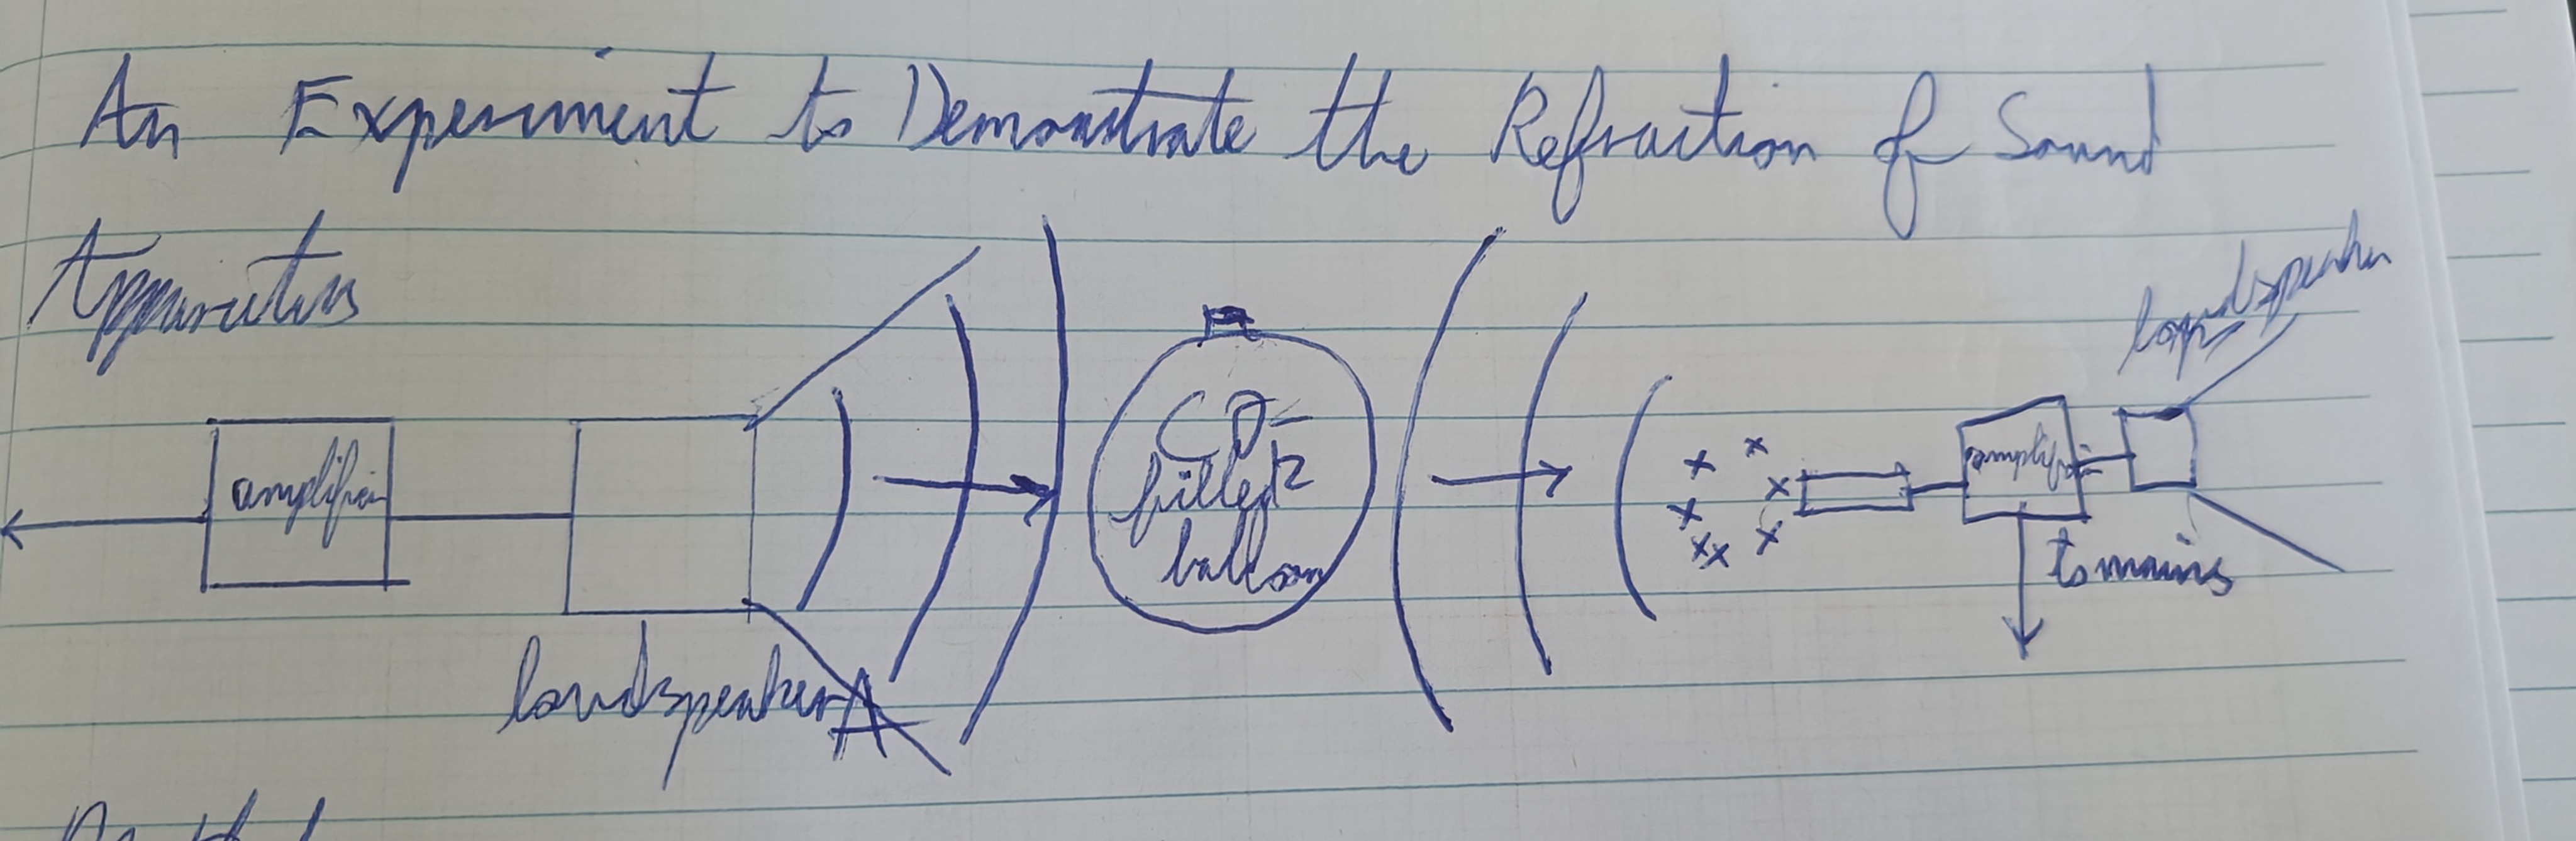 An Experiment to Demonstrate the Refraction of Sound
Apparatus
loudspeaker
amplifier
CO2
filled
balloon
amplifier
to mains
loudspeaker A